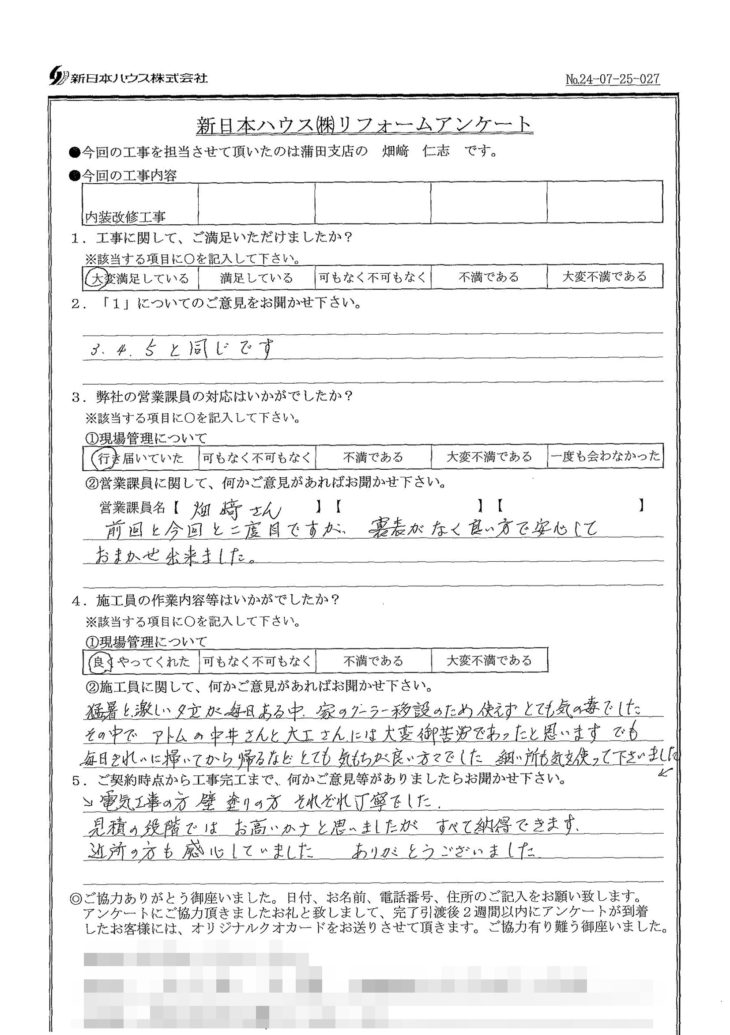 新日本ハウス株式会社
No.24-07-25-027
新日本ハウス㈱リフォームアンケート
●今回の工事を担当させて頂いたのは蒲田支店の 畑﨑 仁志 です。
●今回の工事内容
内装改修工事
1．工事に関して、ご満足いただけましたか？
※該当する項目に○を記入して下さい。
大変満足している 満足している 可もなく不可もなく 不満である 大変不満である
2．「1」についてのご意見をお聞かせ下さい。
3.4.5と同じです
3．弊社の営業課員の対応はいかがでしたか？
※該当する項目に○を記入して下さい。
①現場管理について
行き届いていた 可もなく不可もなく 不満である 大変不満である 一度も会わなかった
②営業課員に関して、何かご意見があればお聞かせ下さい。
営業課員名【 畑﨑さん 】【 】【 】
前回と今回と二度目ですが、裏表がなく良い方で安心して
おまかせ出来ました。
4．施工員の作業内容等はいかがでしたか？
※該当する項目に○を記入して下さい。
①現場管理について
良くやってくれた 可もなく不可もなく 不満である 大変不満である
②施工員に関して、何かご意見があればお聞かせ下さい。
猛暑と激しい夕立が毎日ある中、家のクーラー移設のため使えずとても気の毒でした
その中で アトムの中井さんと大工さんには大変御苦労であったと思います でも
毎日きれいに掃いてから帰るなどとても気もちが良い方々でした 細い所も気を使って下さいました
5．ご契約時点から工事完工まで、何かご意見等がありましたらお聞かせ下さい。
電気工事の方 壁塗りの方 それぞれ丁寧でした.
見積の段階では お高いかナと思いましたが すべて納得できます.
近所の方も感心していました ありがとうございました
◎ご協力ありがとう御座いました。日付、お名前、電話番号、住所のご記入をお願い致します。
アンケートにご協力頂きましたお礼と致しまして、完了引渡後２週間以内にアンケートが到着
したお客様には、オリジナルクオカードをお送りさせて頂きます。ご協力有り難う御座いました。